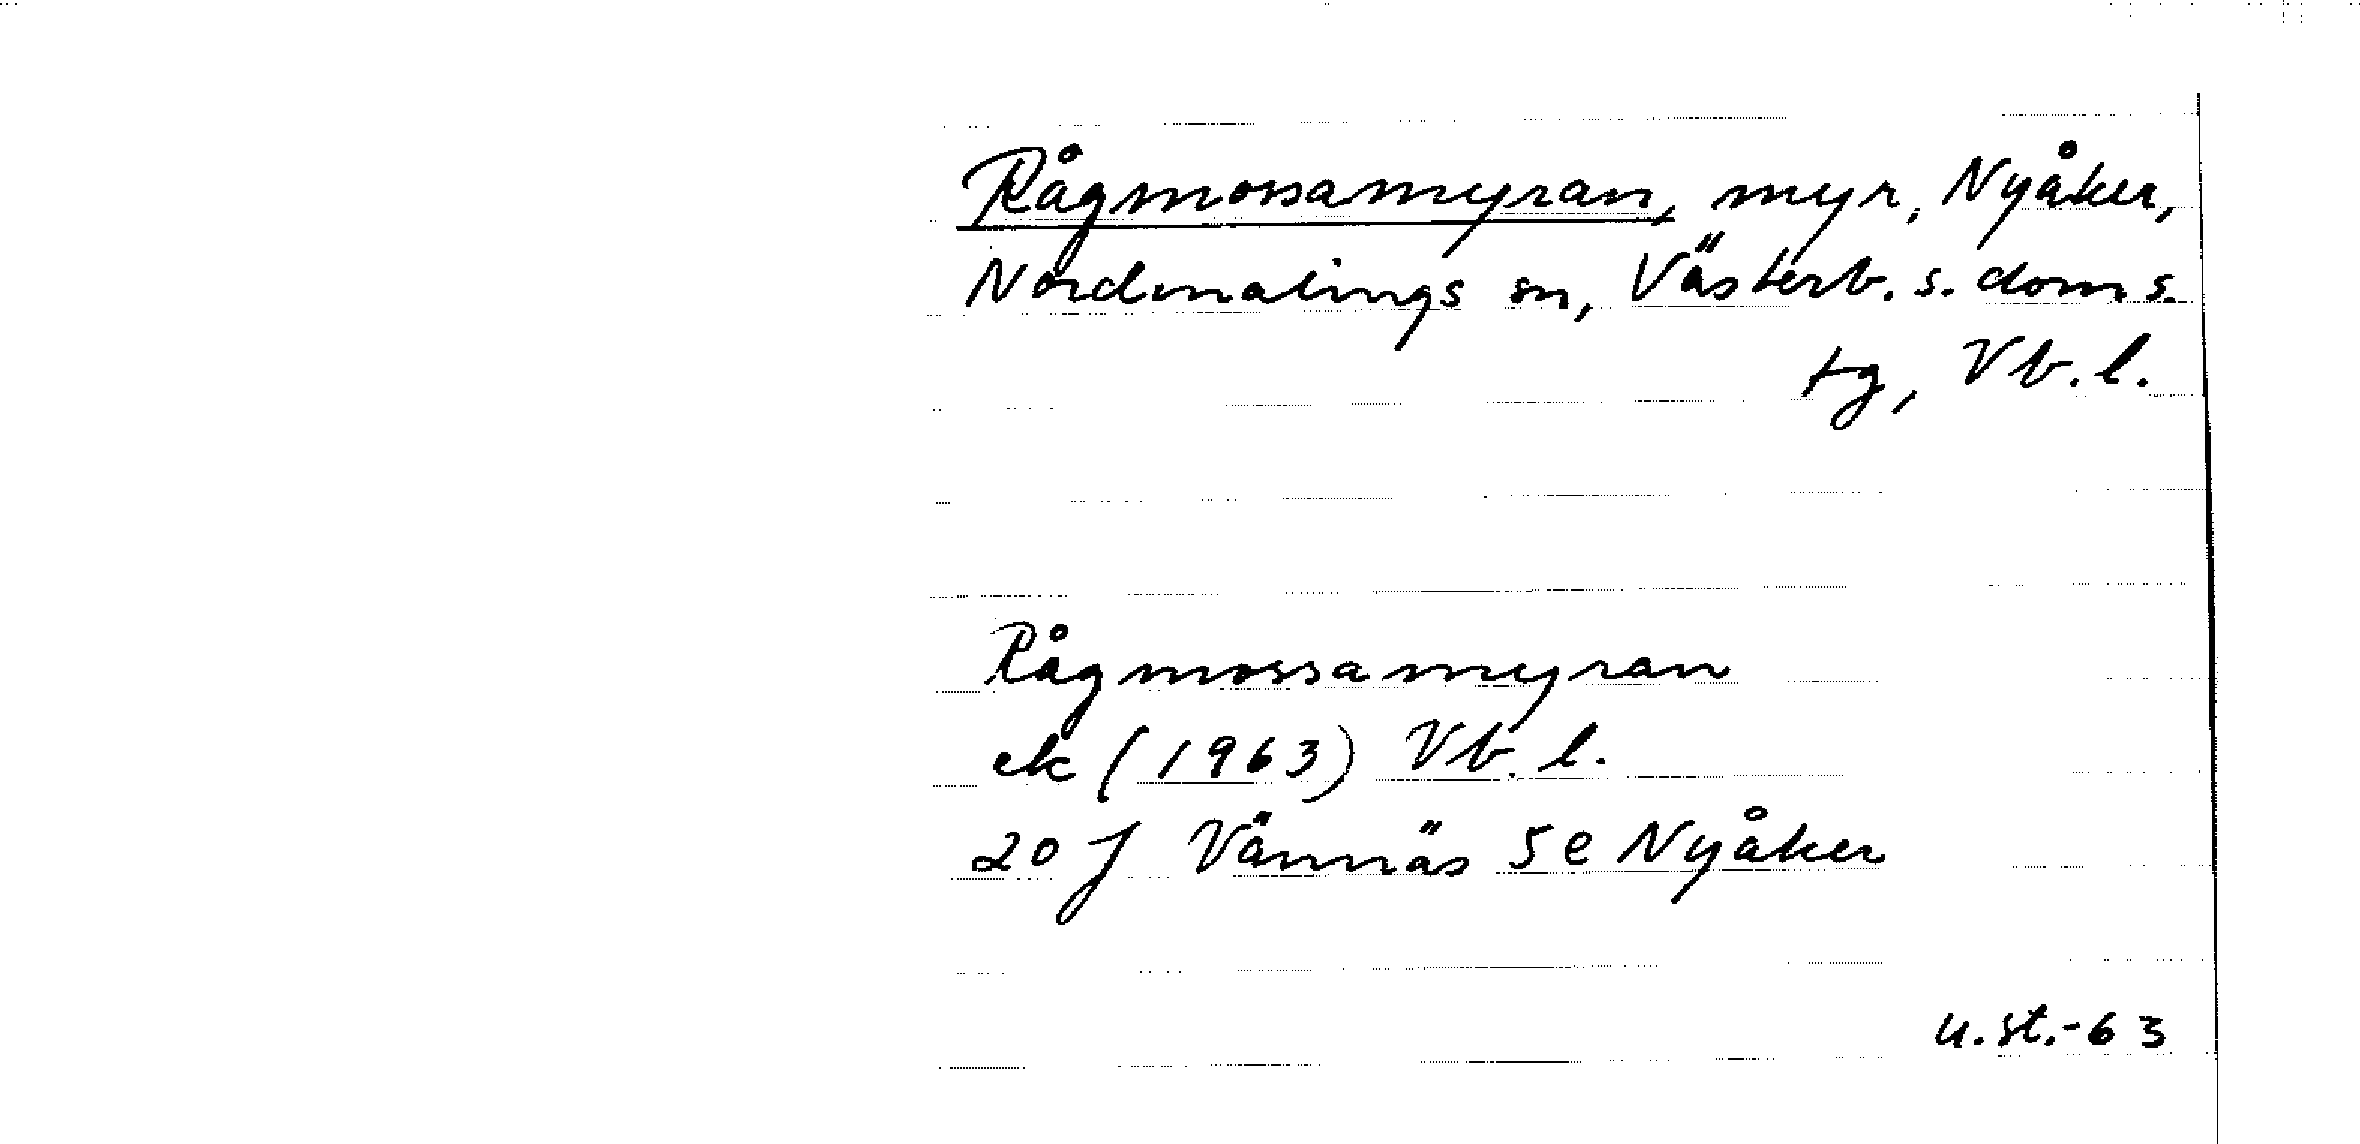 Rågmossamyran, myr, Nyåker,
Nordmalings sn, Västerb. s. doms.
tg, Vb. l.
Rågmossamyran
ek (1963) Vb. l.
20 J Vännäs 5e Nyåker
u.st.-63